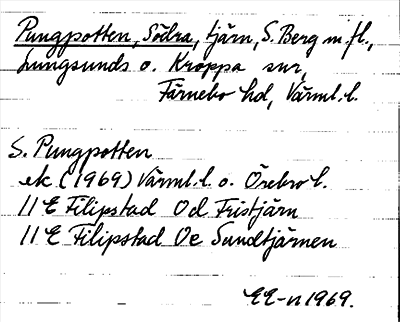 Pungpotten, Södra, tjärn, S. Berg m.fl.,
Lungsunds o. Kroppa snr,
Färnebo hd, Värml. l.
S. Pungpotten
ek (1969) Värml. l. o. Örebro l.
11 E Filipstad 0d Fristjärn
11 E Filipstad 0e Sundtjärnen
EE-n 1969.